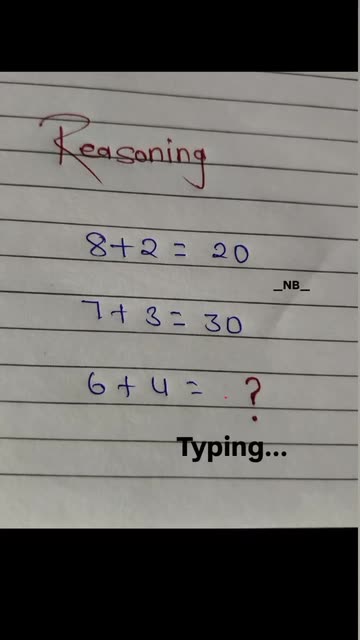 Reasoning
8+2 = 20
_NB_
7+3=30
6+4= .?
Typing...